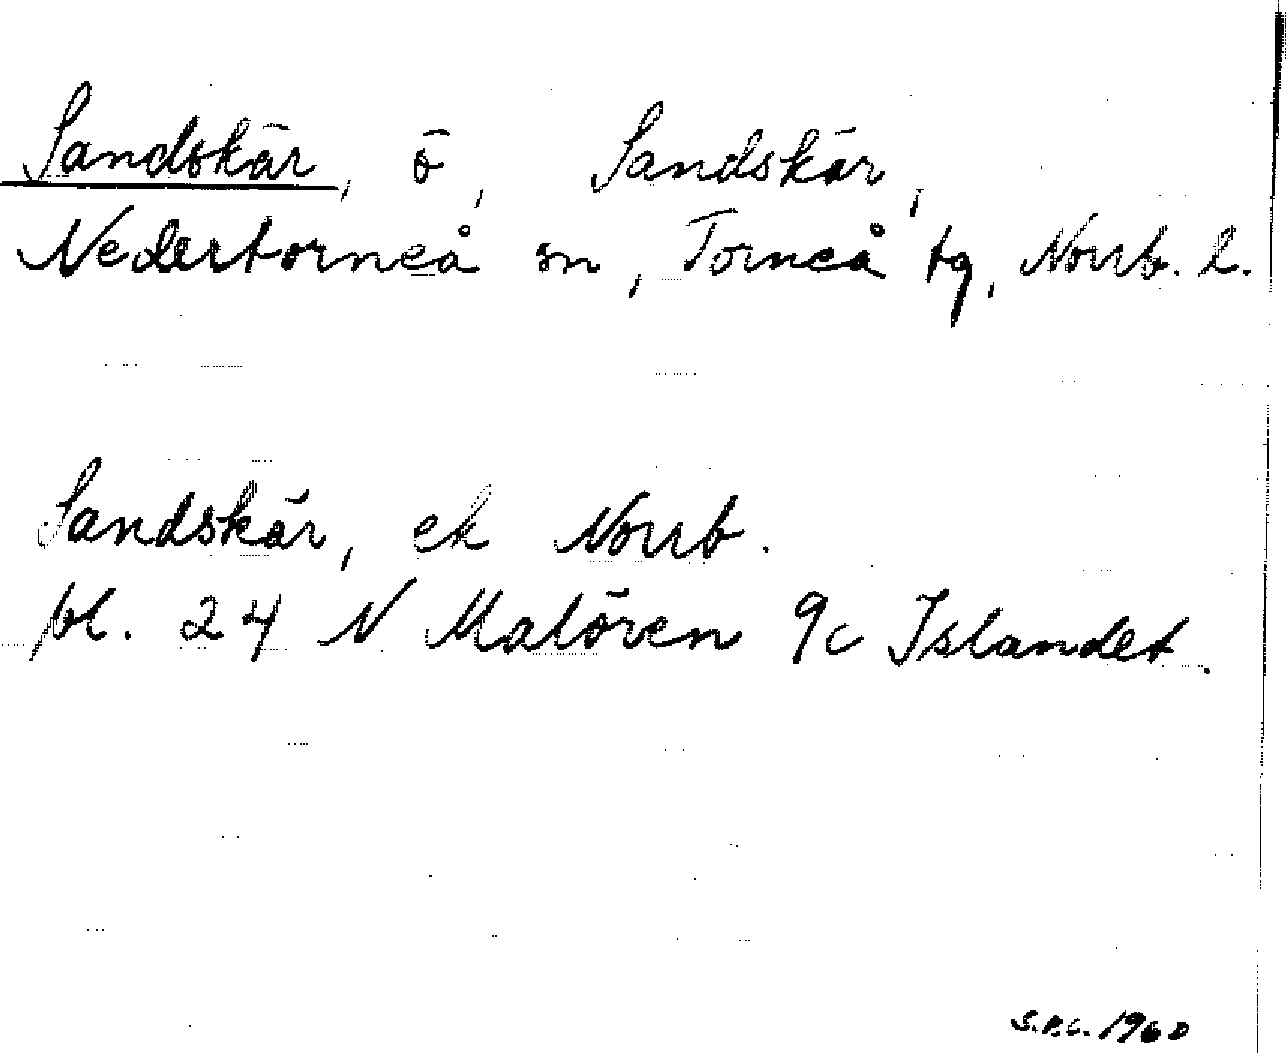 Sandskär, ö, Sandskär,
Nedertorneå sn, Torneå tg, Norrb. l.
Sandskär, ek Norrb.
bl. 24 N Malören 9c Islandet.
1960